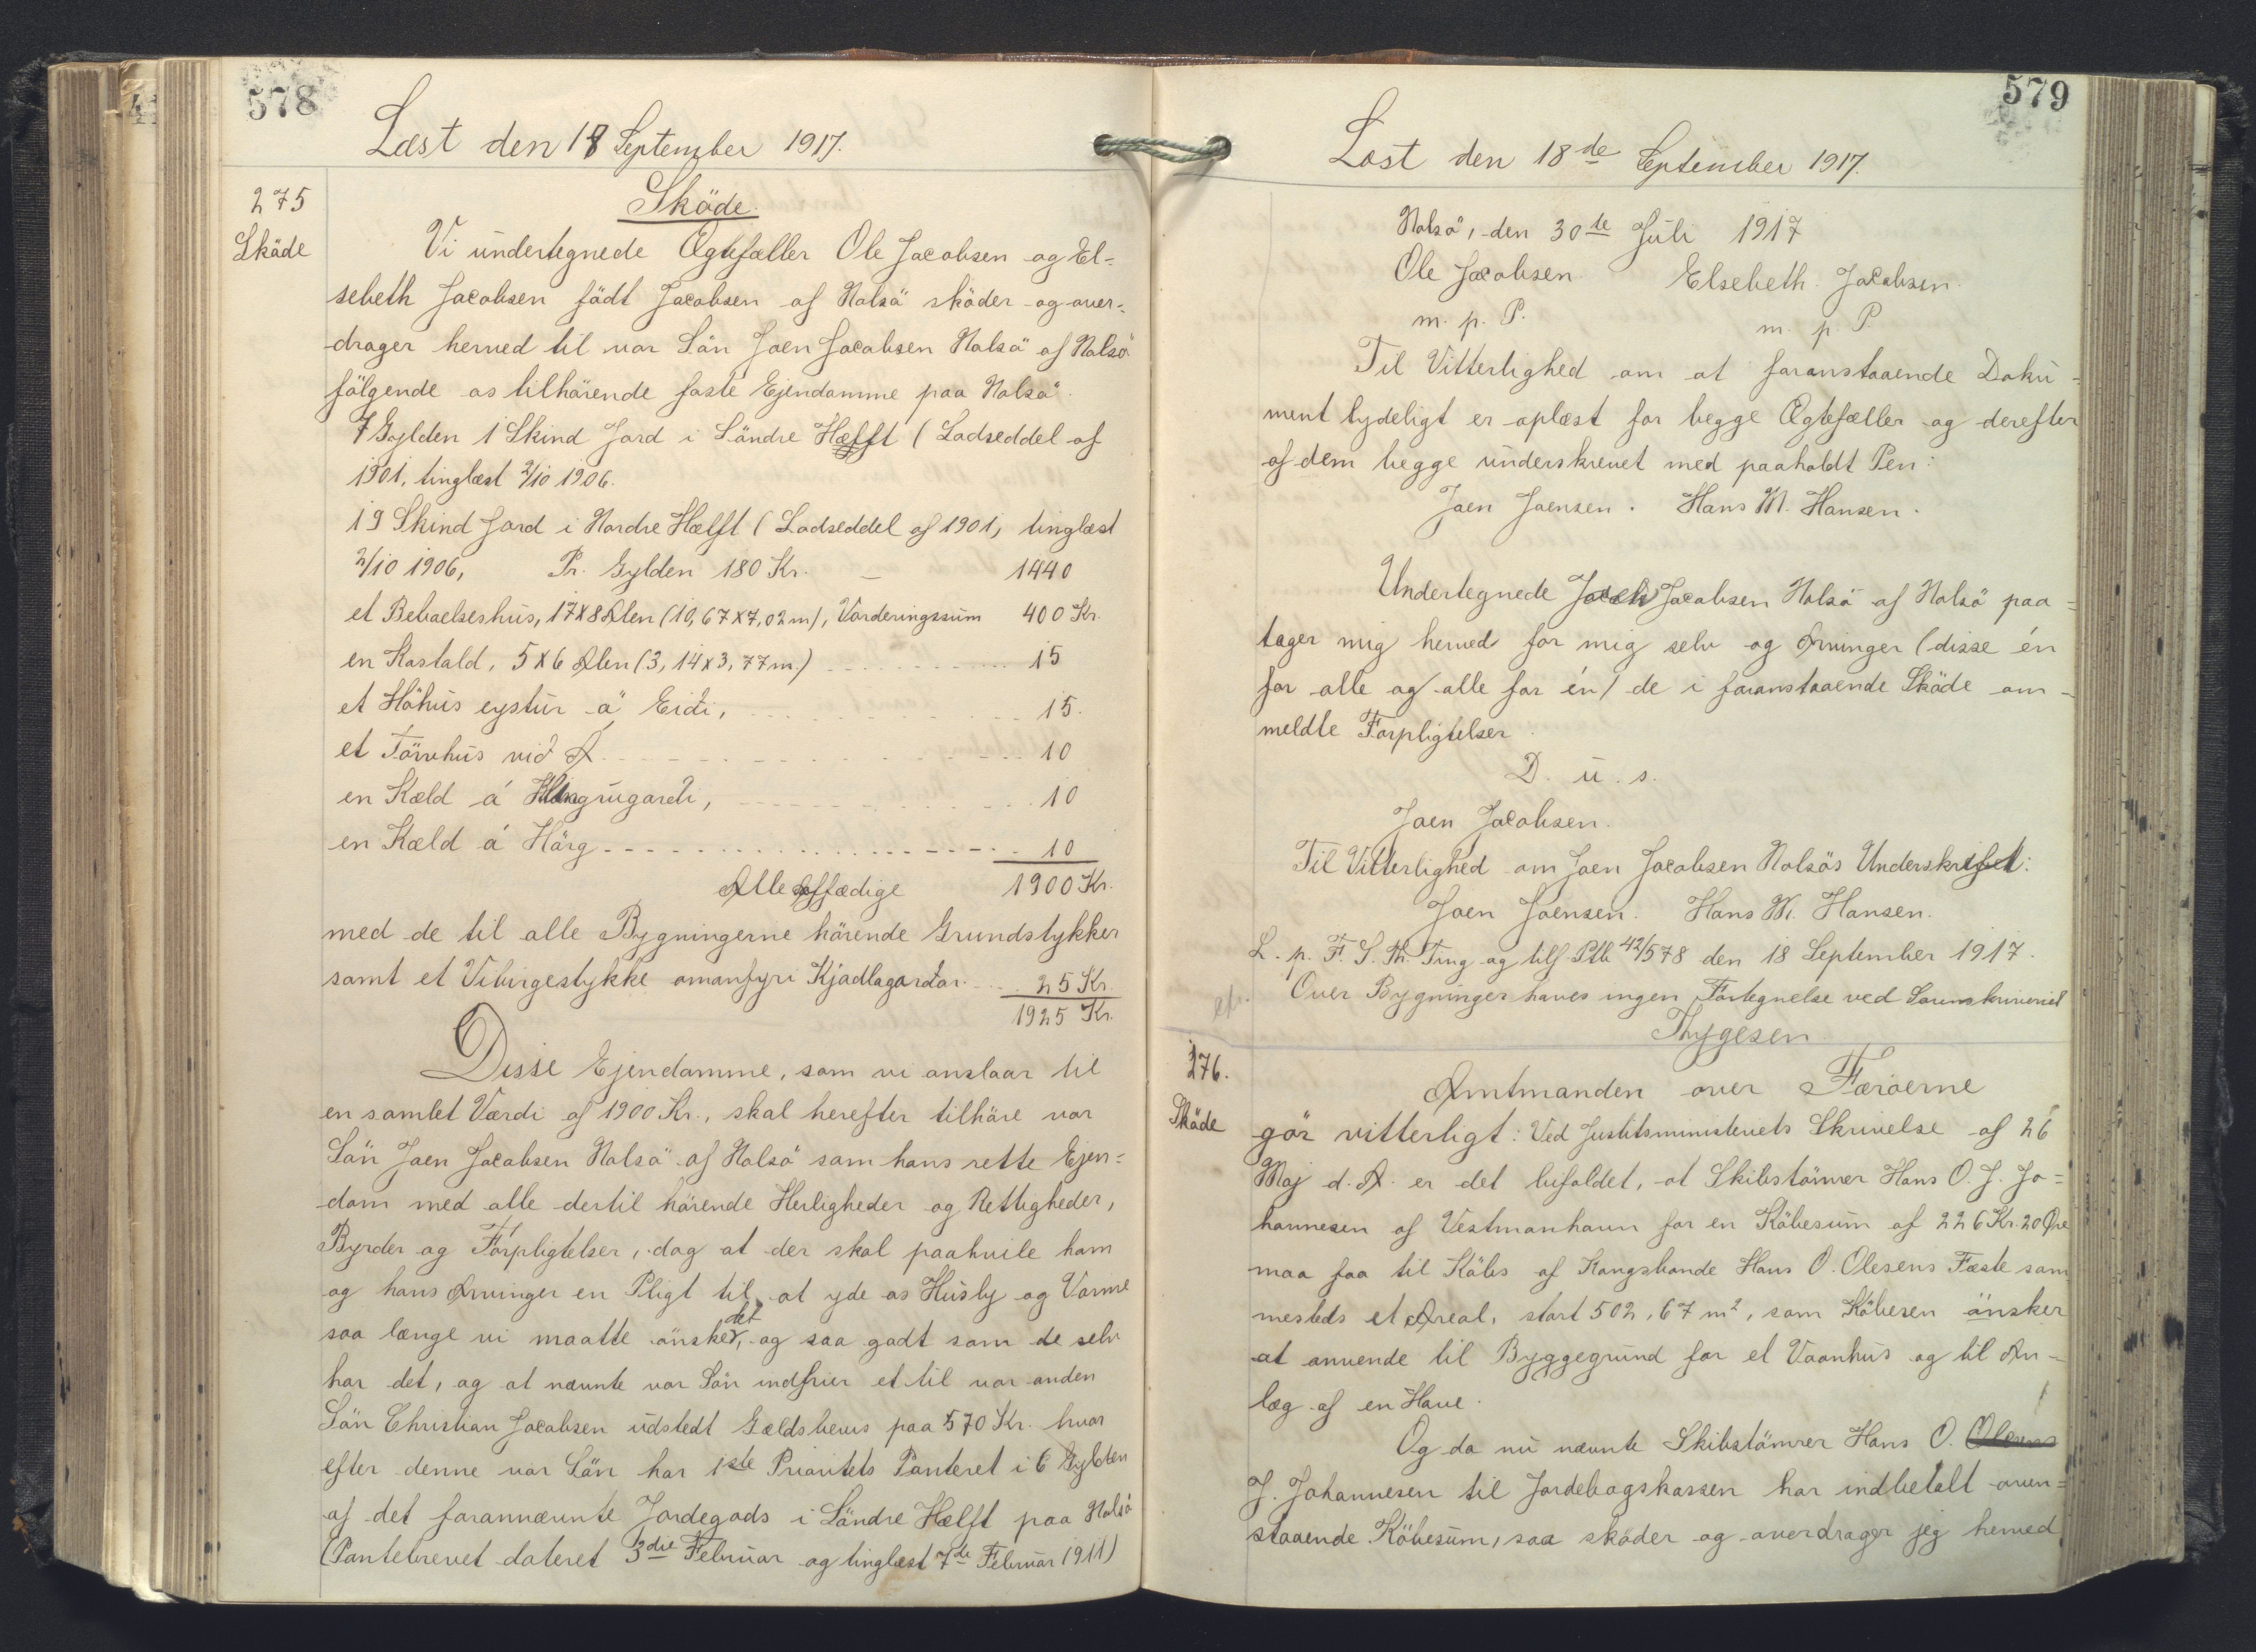 578
Læst den 18 September 1917.
275
Sköde
Sköde.
Vi undertegnede Ægtefæller Ole Jacobsen og El=
sebeth Jacobsen födt Jacobsen af Nolsö sköder og over=
drager herved til vor Sön Joen Jacobsen Nolsö af Nolsö
fölgende os tilhörende faste Ejendomme paa Nolsö.
7 Gylden 1 Skind Jord i Söndre Hælft (Lodseddel af
1901, tinglæst 2/10 1906.
19 Skind Jord i Nordre Hælft (Lodseddel af 1901, tinglæst
2/10 1906, Pr. Gylden 180 Kr. — 1440
et Beboelseshus, 17x8 Alen (10,67x7,02m), Vorderingssum 400 Kr.
en Kostald, 5x6 Alen (3,14x3,77m.) 15
et Höhus eystur á Eiði, 15.
et Törvhus við Á 10
en Kæld á gugardi, 10
en Kæld á Hörg 10
Alle affædige 1900 Kr.
med de til alle Bygningerne hörende Grundstykker
samt et Viburgestykke omanfyri Kjadlagardar 25 Kr.
1925 Kr.
Disse Ejendomme, som vi anslaar til
en samlet Værdi af 1900 Kr., skal herefter tilhöre vor
Sön Joen Jacobsen Nolsö af Nolsö som hans rette Ejen=
dom med alle dertil hörende Herligheder og Rettigheder,
Byrder og Forpligtelser, dog at der skal paahvile ham
og hans Arvinger en Pligt til at yde os Husly og Varme
saa længe vi maatte önske det, og saa godt som de selv
har det, og at nævnte vor Sön indfrier et til vor anden
Sön Christian Jacobsen udstedt Gældsbevis paa 570 Kr. hvor
efter denne vor Sön har 1ste Prioritets Panteret i 6 Gylden
af det forannævnte Jordegods i Söndre Hælft paa Nolsö
(Pantebrevet dateret 3die Februar og tinglæst 7de Februar 1911)
579
Læst den 18de September 1917.
Nolsö, den 30te Juli 1917
Ole Jacobsen Elsebeth Jacobsen.
m. p. P. m. p. P.
Til Vitterlighed om at foranstaaende Doku=
ment tydeligt er oplæst for begge Ægtefæller og derefter
af dem begge underskrevet med paaholdt Pen:
Joen Joensen. Hans M. Hansen.
Undertegnede Jacobsen Nolsö af Nolsö paa=
tager mig herved for mig selv og Arvinger (disse én
for alle og alle for én) de i foranstaaende Sköde om=
meldte Forpligtelser.
D. u. s.
Joen Jacobsen.
Til Vitterlighed om Joen Jacobsen Nolsös Underskrift:
Joen Joensen. Hans M. Hansen.
L. p. F. S. Th. Ting og tilf. Ptb 42/578 den 18 September 1917.
Over Bygninger haves ingen Fortegnelse ved Sorenskriveriet
Thygesen
276.
Sköde
Amtmanden over Færöerne
gör vitterligt: Ved Justitsministeriets Skrivelse af 26
Maj d. A. er det bifaldet, at Skibstömrer Hans O. J. Jo=
hannesen af Vestmanhavn for en Köbesum af 226 Kr. 20 Øre
maa faa til Köbs af Kongsbonde Hans O. Olesens Fæste sam
mesteds et Areal, stort 502,67 m², som Köberen önsker
at anvende til Byggegrund for et Vaanhus og til An=
læg af en Have.
Og da nu nævnte Skibstömrer Hans O. Olesens
J. Johannesen til Jordebogskassen har indbetalt oven=
staaende Köbesum, saa sköder og overdrager jeg herved